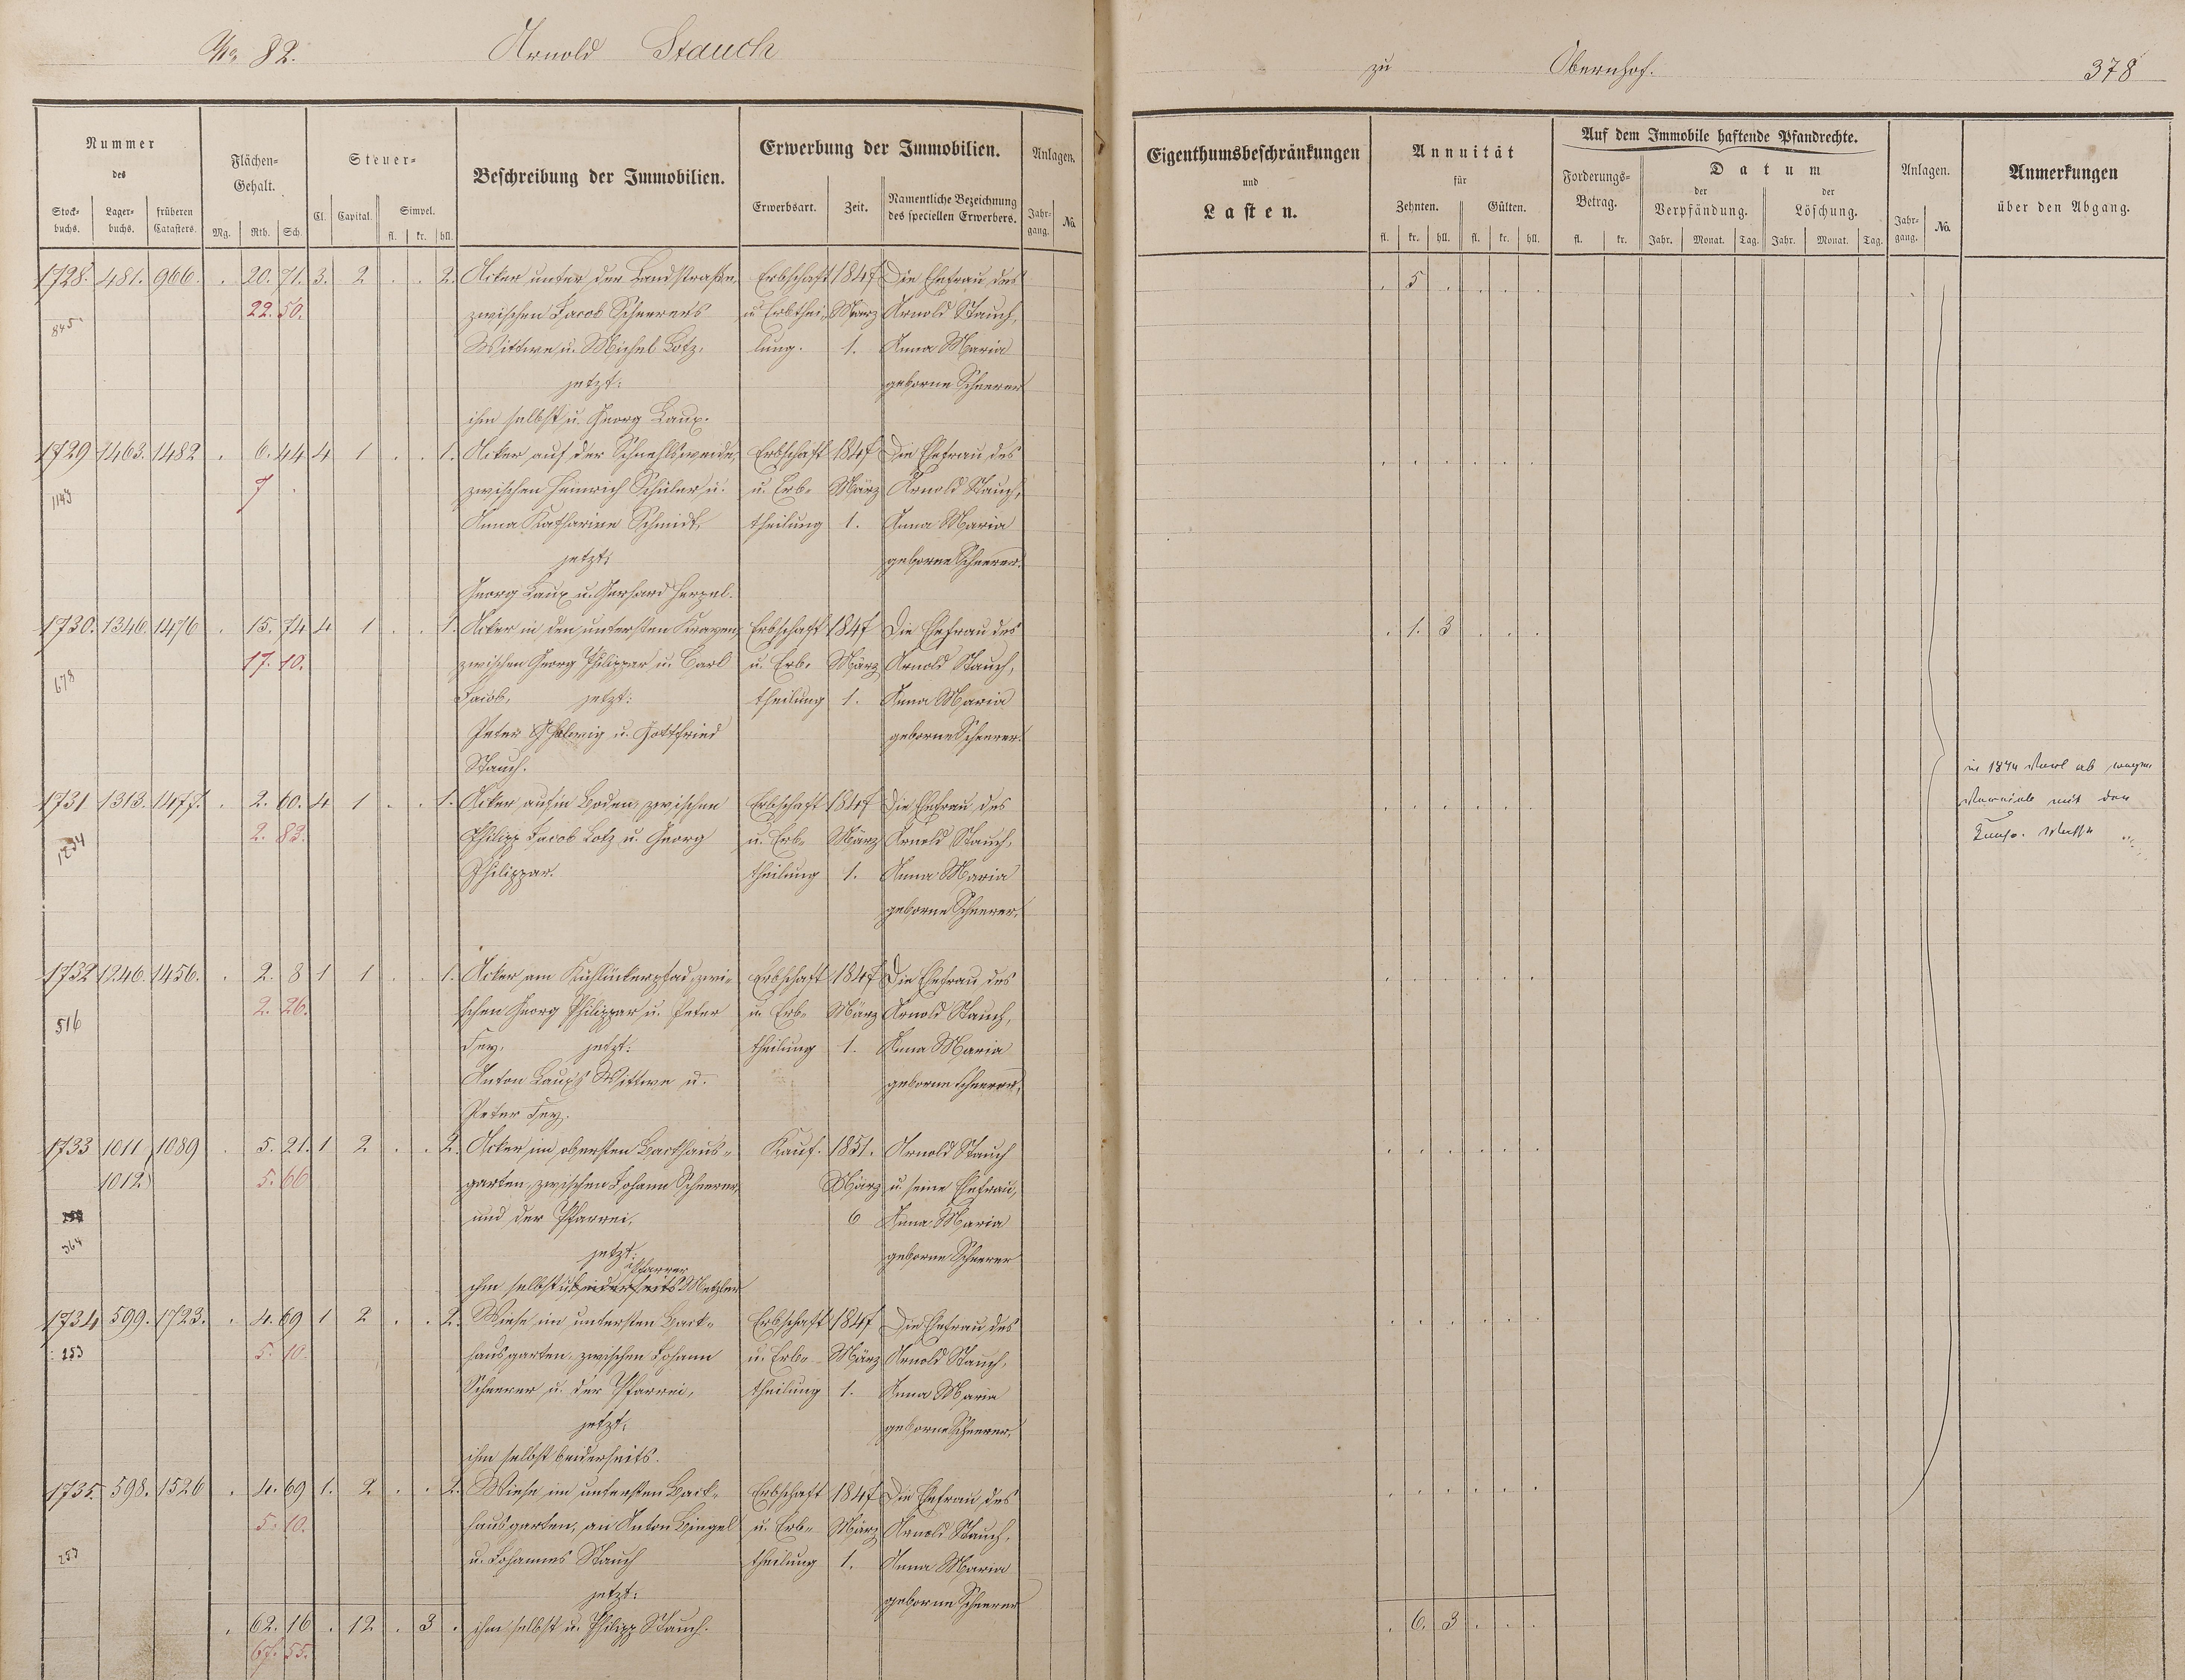 No 82. Arnold Stauch
zu Obernhof. 378
Nummer des
Stockbuchs. Lagerbuchs. früheren Catasters.
Flächen-Gehalt.
Mg. Rth. Sch.
Steuer-
Cl. Capital. Simpel.
fl. kr. hll.
Beschreibung der Immobilien.
Erwerbung der Immobilien.
Erwerbsart. Zeit. Namentliche Bezeichnung des speciellen Erwerbers.
Anlagen.
Jahrgang. No
Eigenthumsbeschränkungen und Lasten.
Annuität für
Zehnten. Gülten.
fl. kr. hll. fl. kr. hll.
Auf dem Immobile haftende Pfandrechte.
Forderungs-Betrag.
fl. kr.
Datum
der Verpfändung. der Löschung.
Jahr. Monat. Tag. Jahr. Monat. Tag.
Anlagen.
Jahrgang. No
Anmerkungen über den Abgang.
1728. 481. 966. . 20. 71. 3. 2 . . 2. Acker unter der Landstraße, Erbschaft 1847 Die Ehefrau des . 5 . . . .
22. 50. zwischen Jacob Scheerers u Erbthei- März Arnold Stauch,
845 Wittwe u. Michel Lotz, lung. 1. Anna Maria
jetzt: geborne Scheerer
ihm selbst u. Georg Laux.
1729 1463. 1482 . 6. 44 4 1 . . 1. Acker auf der Schnehlsweide, Erbschaft 1847 Die Ehefrau des . . . . . .
7 . zwischen Heinrich Schüler u. u. Erb- März Arnold Stauch,
1143 Anna Katharine Schmidt, theilung 1. Anna Maria
jetzt: geborne Scheerer.
Georg Laux u. Gerhard Herzel.
1730. 1346. 1476 . 15. 74 4 1 . . 1. Acker in den untersten Erbschaft 1847 Die Ehefrau des . 1. 3 . . .
17. 10. zwischen Georg Philippar u. Carl u. Erb- März Arnold Stauch,
678 Jacob, jetzt: theilung 1. Anna Maria
Peter u. Gottfried geborne Scheerer.
Stauch.
1731 1313. 1477. . 2. 60. 4 1 . . 1. Acker aufm Boden, zwischen Erbschaft 1847 Die Ehefrau des . . . . . .
2. 83. Philipp Jacob Lotz u. Georg u. Erb- März Arnold Stauch,
1234 Philippar. theilung 1. Anna Maria
geborne Scheerer.
in 1874 ab wegen
mit der
1732 1246. 1456. . 2. 8 1 1 . . 1. Acker am zwi- Erbschaft 1847 Die Ehefrau des . . . . . .
2. 26. schen Georg Philippar u. Peter u. Erb- März Arnold Stauch,
516 Fey, jetzt: theilung 1. Anna Maria
Anton Laux's Wittwe u. geborne Scheerer,
Peter Fey.
1733 1011 1089 . 5. 21. 1 2 . . 2. Acker im obersten Backhaus- Kauf. 1851. Arnold Stauch . . . . . .
1012 5. 66 garten, zwischen Johann Scheerer, März u. seine Ehefrau,
und der Pfarrei, 6 Anna Maria
364 jetzt: geborne Scheerer
Pfarrer
ihm selbst u. beiderseits Metzler
1734 599. 1723. . 4. 69 1 2 . . 2. Wiese im untersten Back- Erbschaft 1847 Die Ehefrau des . . . . . .
253 5. 10. hausgarten, zwischen Johann u. Erb- März Arnold Stauch,
Scheerer u. der Pfarrei, theilung 1. Anna Maria
jetzt: geborne Scheerer,
ihm selbst beiderseits.
1735. 598. 1526 . 4. 69 1. 2. . . 2. Wiese im untersten Back- Erbschaft 1847 Die Ehefrau des . . . . . .
5. 10. hausgarten, an Anton Bingel u. Erb- März Arnold Stauch,
253 u. Johannes Stauch theilung 1. Anna Maria
jetzt: geborne Scheerer
. 62. 16 . 12 . 3 . ihm selbst u. Philipp Stauch. . 6. 3 . . .
67. 55.